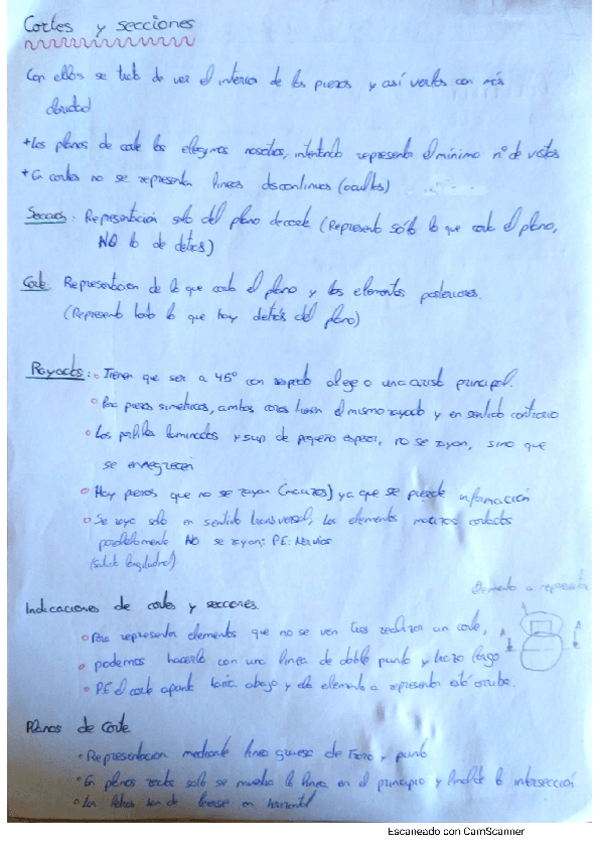 Cortes y secciones
Con ellos se trata de ver el interior de las piezas y así verlas con más
claridad
+ Los planos de corte los elegimos nosotros, intentando representar el mínimo nº de vistas
+ En cortes no se representan líneas discontinuas (ocultas)
Sección: Representación solo del plano de corte (Represento sólo lo que corta el plano,
NO lo de detrás)
Corte: Representación de lo que corta el plano y los elementos posteriores.
(Represento todo lo que hay detrás del plano)
Rayados: Tienen que ser a 45º con respecto al eje o una arista principal.
Para piezas simétricas, ambas caras tienen el mismo rayado y en sentido contrario
Los perfiles laminados y sup de pequeño espesor, no se rayan, sino que
se ennegrecen
Hay piezas que no se rayan (macizos) ya que se pierde información
Se raya solo en sentido transversal, los elementos macizos cortados
paralelamente NO se rayan; P.E: Nervios
(sentido longitudinal)
Elemento a representar
Indicaciones de cortes y secciones.
Para representar elementos que no se ven tras realizar un corte,
podemos hacerlo con una línea de doble punto y trazo largo
P.E el corte apunta hacia abajo y el elemento a representar está arriba.
Planos de Corte
Representación mediante línea gruesa de trazo y punto
En planos rectos solo se muestra la línea en el principio y final de la intersección
Las letras han de leerse en horizontal
Escaneado con CamScanner